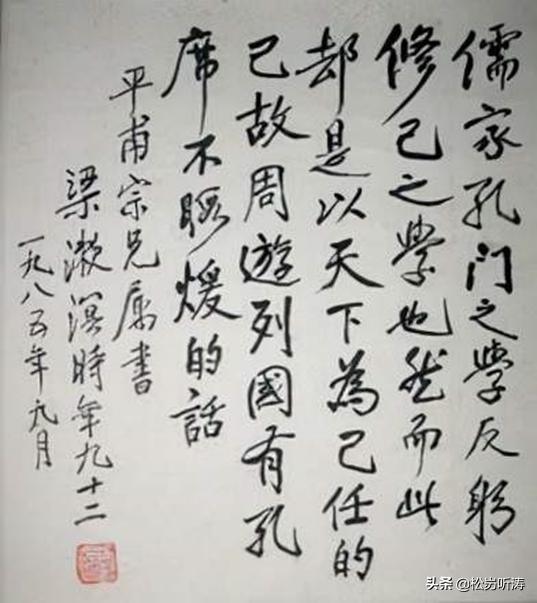 儒家孔门之學反躬
修己之學也然而此
却是以天下為己任的
已故周遊列國有孔
席不暇煖的話
平甫宗兄属書
梁漱溟時年九十二
一九八五年九月
头条 @松岩听涛